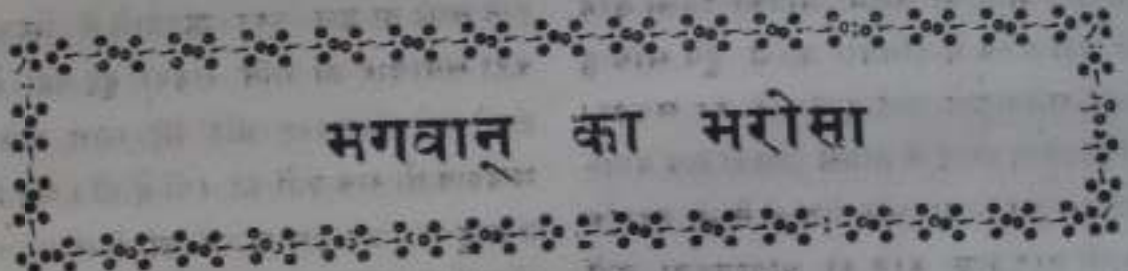 भगवान् का भरोसा